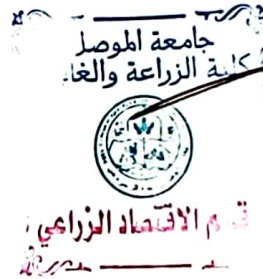 جامعة الموصل
كلية الزراعة والغا
قسم الاقتصاد الزراعي